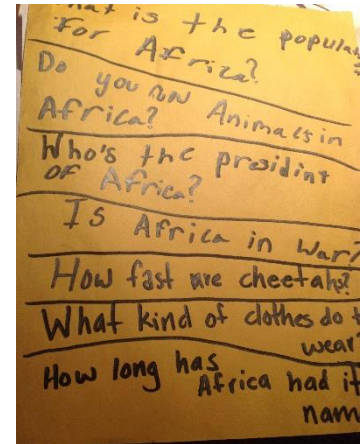 is the
for Africa?
Do you Animals in
Africa?
Who's the presidint
of Africa?
Is Africa in War?
How fast are cheetahs?
What kind of clothes do
wear
How long has
Africa had